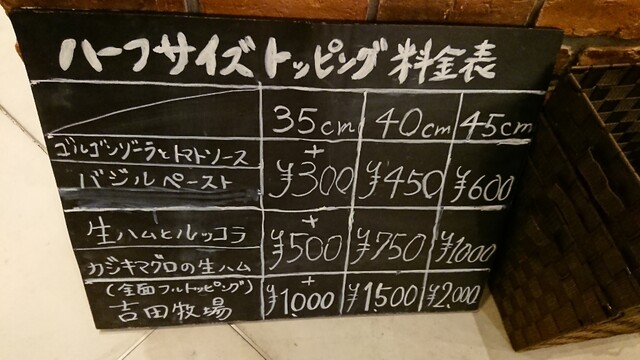 ハーフサイズトッピング料金表
35cm 40cm 45cm
ゴルゴンゾーラとトマトソース
バジルペースト
+
¥300 ¥450 ¥600
生ハムとルッコラ
カジキマグロの生ハム
+
¥500 ¥750 ¥1000
(全面フルトッピング)
吉田牧場
+
¥1,000 ¥1,500 ¥2,000